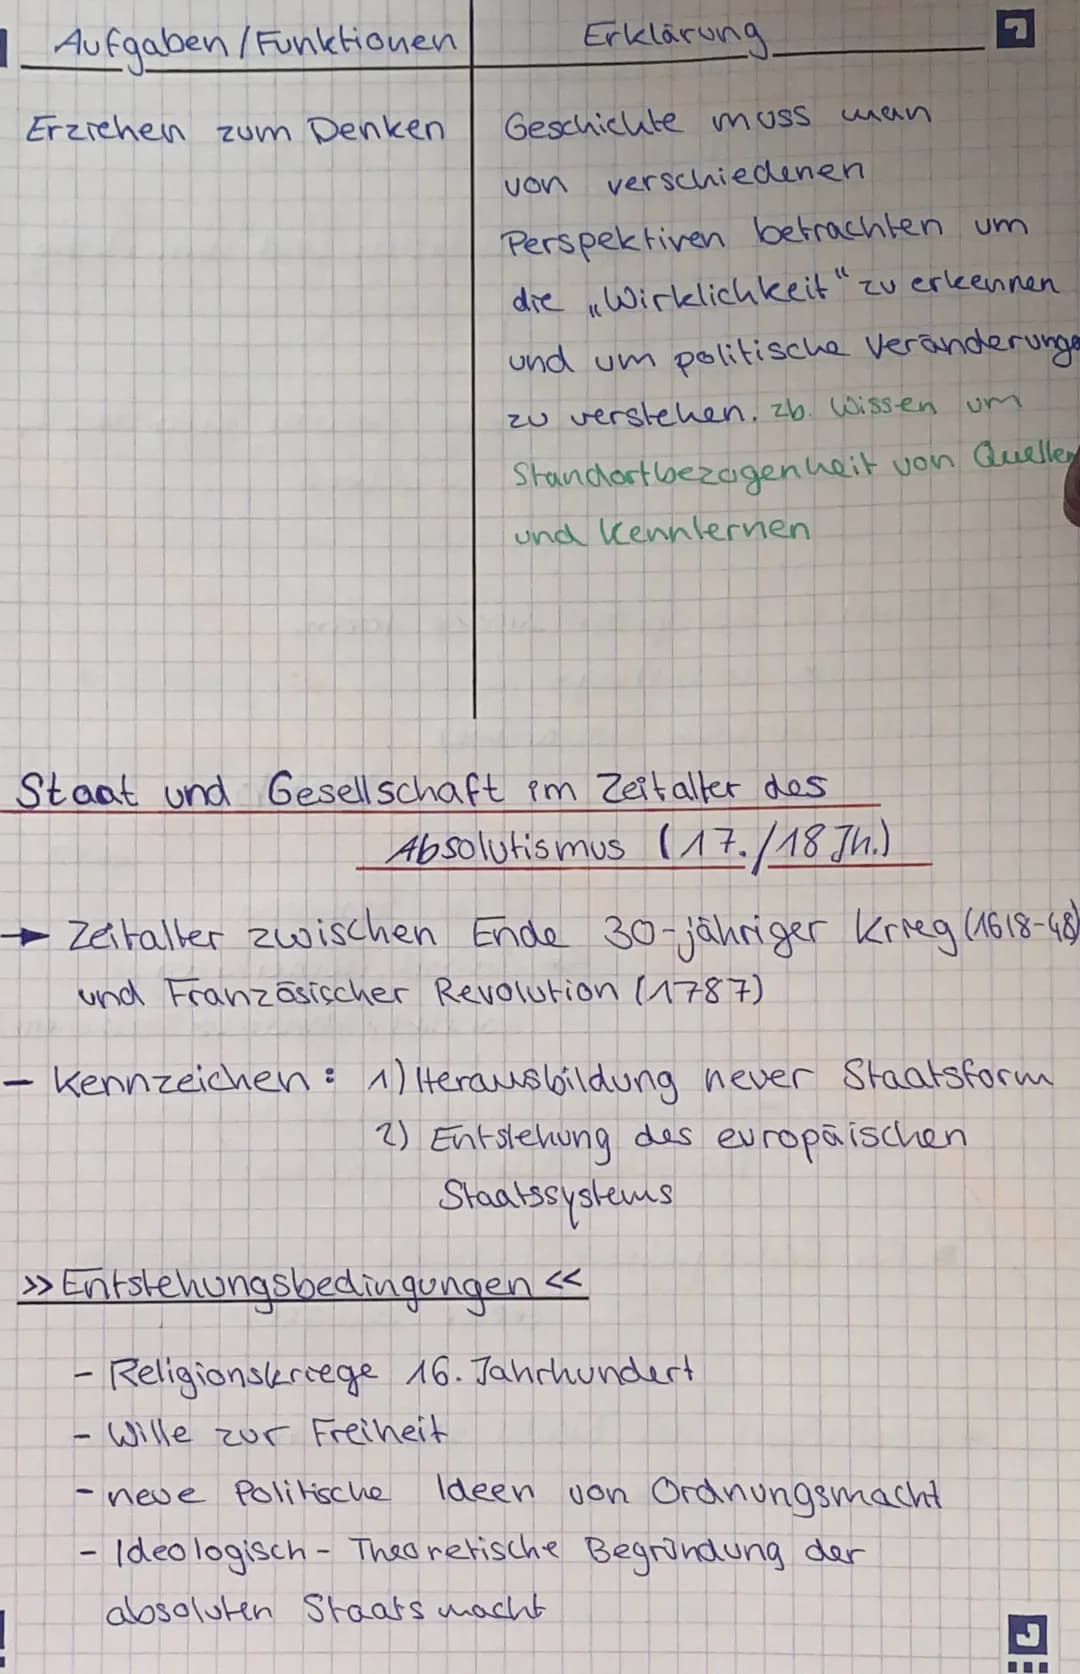 Aufgaben/Funktionen Erklärung
Erziehen zum Denken Geschichte muss man
von verschiedenen
Perspektiven betrachten um
die „Wirklichkeit" zu erkennen
und um politische Veränderunge
zu verstehen. zb. Wissen um
Standortbezogenheit von Quellen
und Kennlernen
Staat und Gesellschaft im Zeitalter des
Absolutismus (17./18 Jh.)
→ Zeitalter zwischen Ende 30-jähriger Krieg (1618-48)
und Französischer Revolution (1787)
- Kennzeichen: 1) Herausbildung neuer Staatsform
2) Entstehung des europäischen
Staatssystems
>> Entstehungsbedingungen <<
- Religionskriege 16. Jahrhundert
- Wille zur Freiheit
- neue Politische Ideen von Ordnungsmacht
- Ideologisch - Theoretische Begründung der
absoluten Staatsmacht